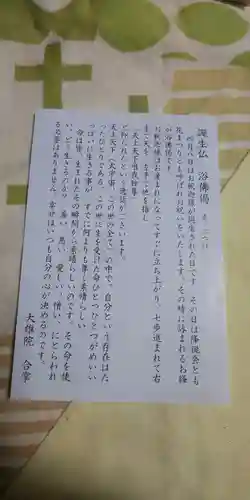 誕生仏　浴佛偈
四月八日はお釈迦様が誕生された日です　その日は降誕会とも
花まつりとも呼ばれお祝いをいたします。その時に詠まれるお経
が浴佛偈です
お釈迦様はお産まれになってすぐに立ち上がり、七歩進まれて右
手で天を、左手で地を指し
「天上天下唯我独尊」
と仰られたという逸話がございます。
天上天下（大宇宙、この世の全て）の中で、自分という存在はた
ったひとりである。この世に生を受けた命ひとつひとつがめいい
っぱいに生きる事が　すでに何よりも尊く素晴らしい
命は皆、生まれたその瞬間から素晴らしいのです。その命を使
い、どう生きるのか？　善い、悪い、愛しい、憎い、にとらわれ
る必要はありません。幸せはいつも自分の心が決めるのです。
大雄院　合掌